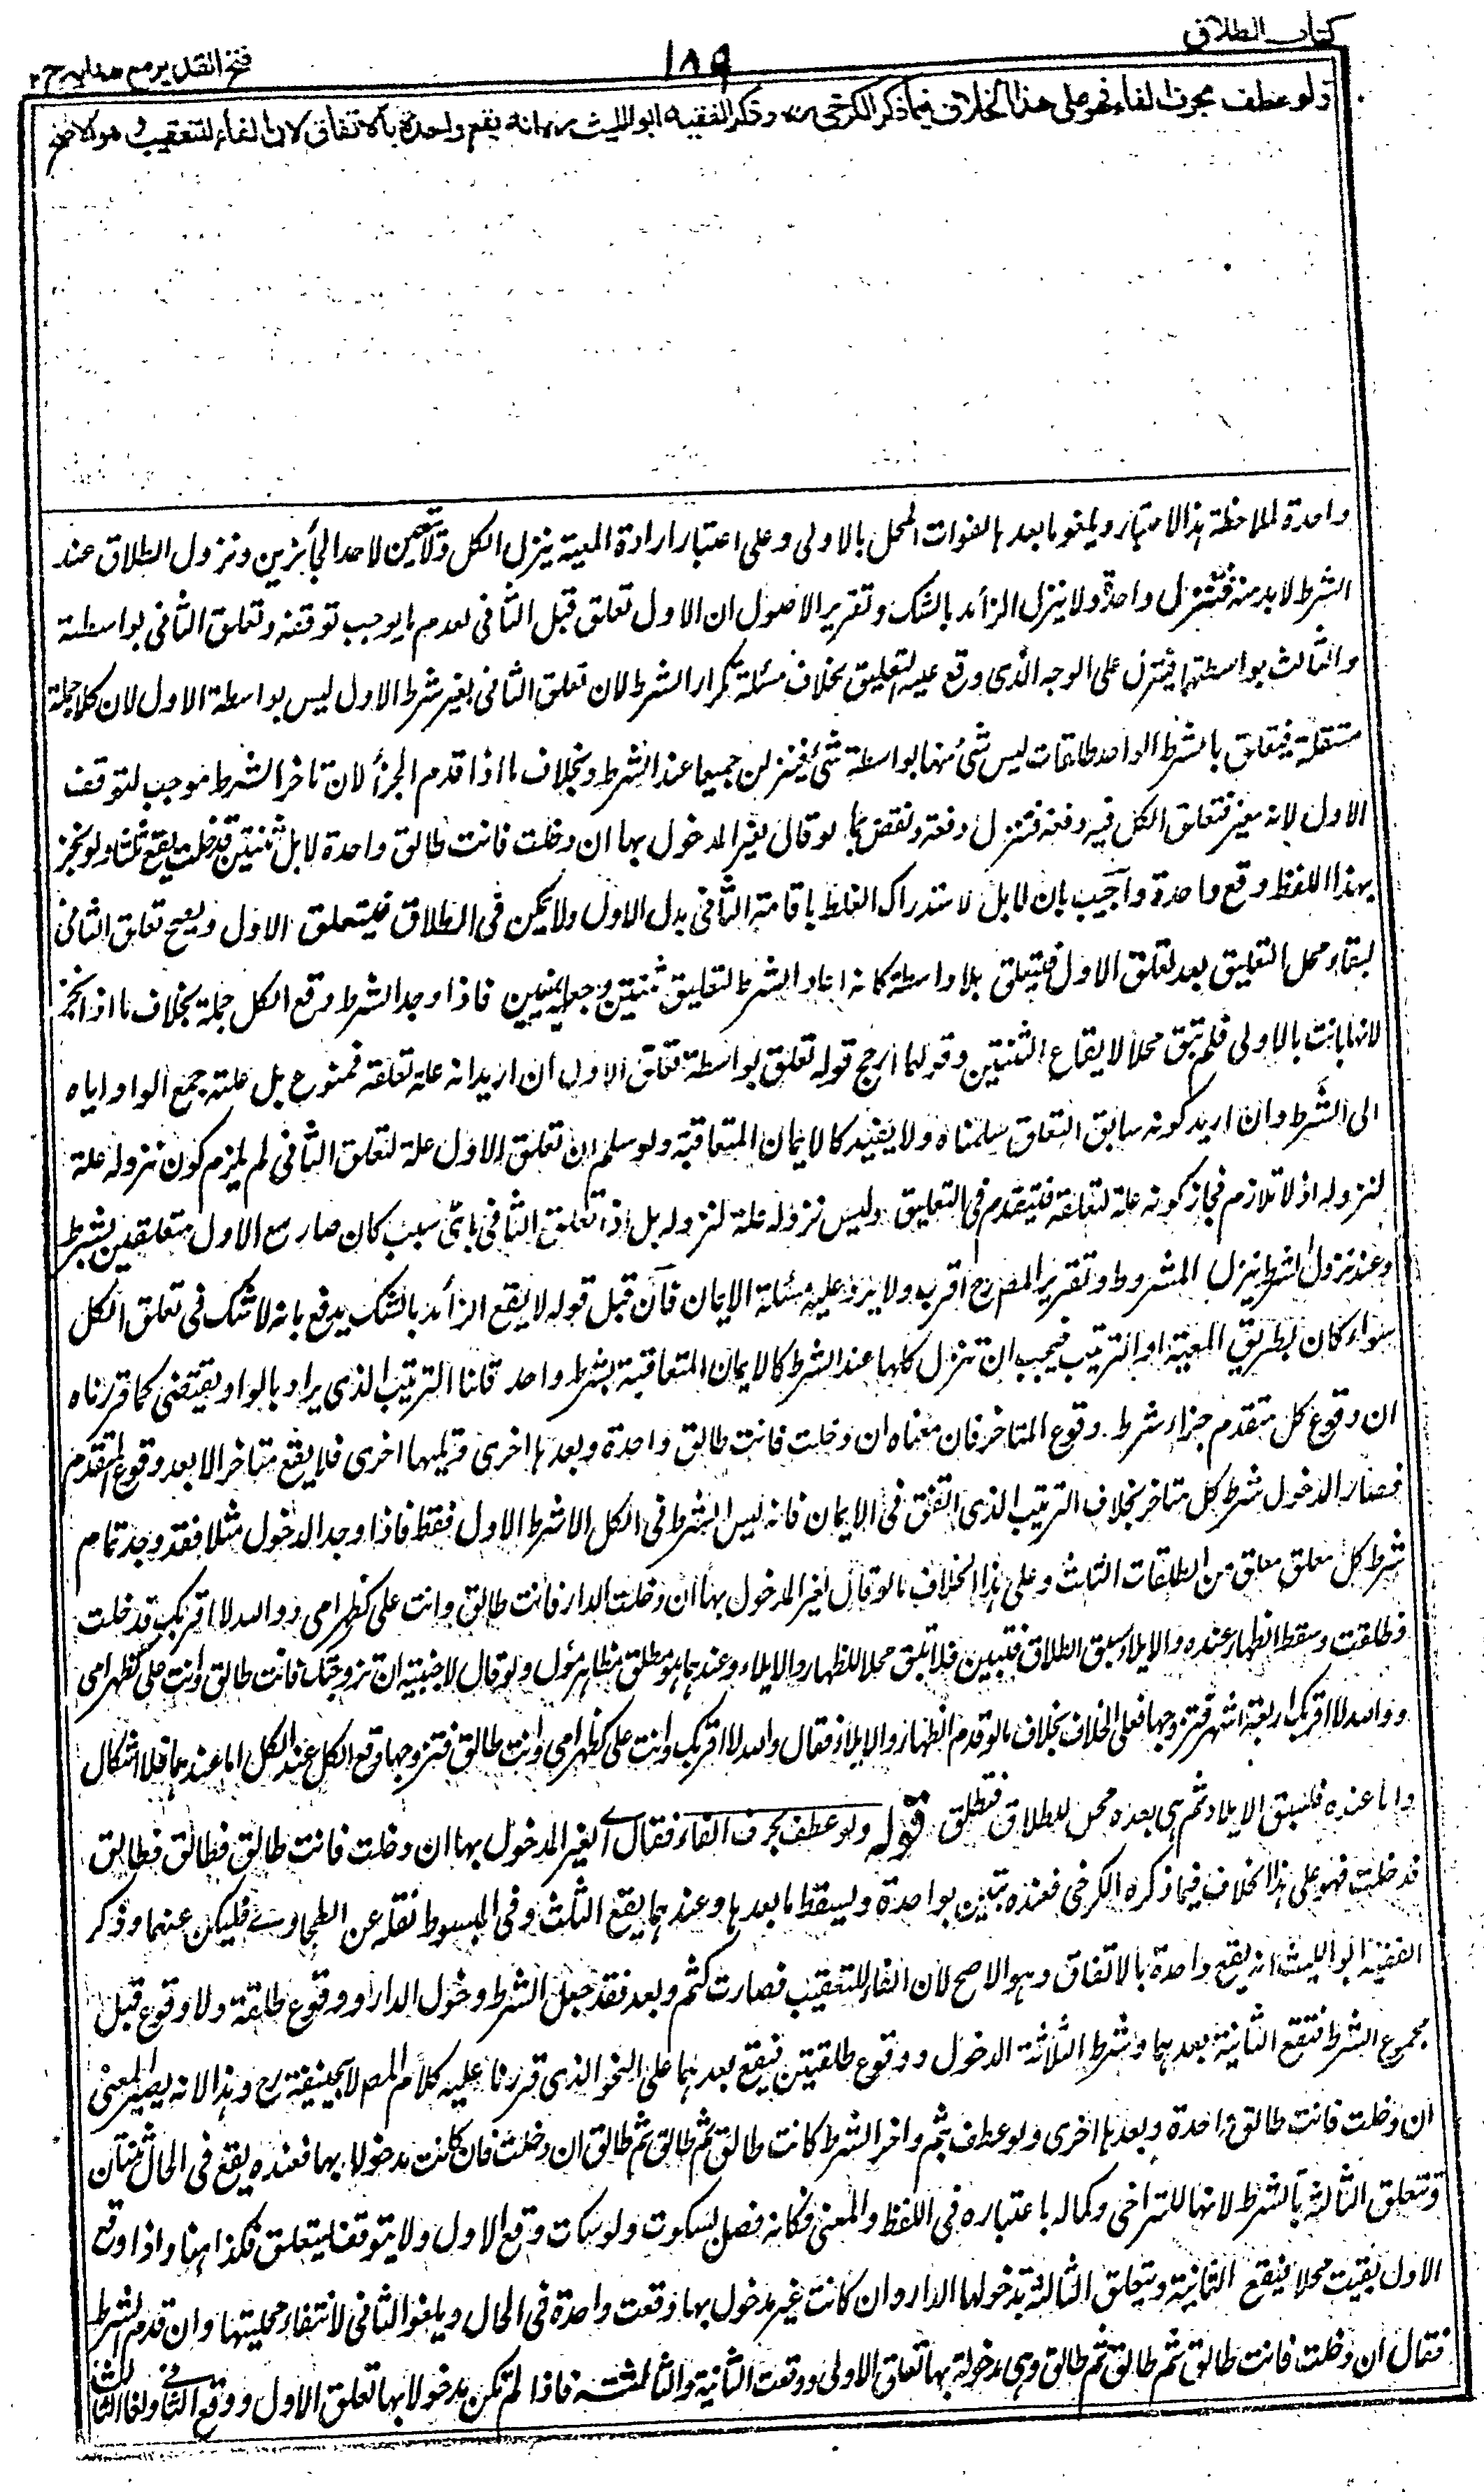 كتاب الطلاق
١٨٩
فتح القدير مع هدايه ج ٢
ولو عطف بحرف الفاء فهو على هذا الخلاف فيما ذكر الكرخي رح وذكر الفقيه ابو الليث رح انه يقع واحدة بالاتفاق لان الفاء للتعقيب وهو الاصح
واحدة لملاحظة هذا الاعتبار ويلغو ما بعدها لفوات المحل بالاولى وعلى اعتبار ارادة المعية ينزل الكل ولا تعيين لاحد الجائزين ونزول الطلاق عند
الشرط لا بد منه فتنزل واحدة ولا ينزل الزائد بالشك وتقرير الاصول ان الاول تعلق قبل الثاني لعدم ما يوجب توقفه وتعلق الثاني بواسطته
والثالث بواسطتهما فينزل على الوجه الذي وقع عليه التعليق بخلاف مسئلة تكرار الشرط لان تعلق الثاني بغير شرط الاول ليس بواسطة الاول لان كلا جملة
مستقلة فيتعلق بالشرط الواحد طلقات ليس شئ منها بواسطة شئ فينزلن جميعا عند الشرط وبخلاف ما اذا قدم الجزأ لان تاخر الشرط موجب لتوقف
الاول لانه مغير فتعلق الكل فيه دفعة فتنزل دفعة ونقض بما لو قال لغير المدخول بها ان دخلت فانت طالق واحدة لا بل ثنتين فدخلت يقع ثلثا ولو نجز
بهذا اللفظ وقع واحدة وآجيب بان لا بل لاستدراك الغلط باقامة الثاني بدل الاول ولا يمكن في الطلاق فيتعلق الاول ويصح تعلق الثاني
لبقاء محل التعليق بعد تعلق الاول فيتعلق بلا واسطة كانه اعاد الشرط لتعليق ثنتين وجعله يمينين فاذا وجد الشرط وقع الكل جملة بخلاف ما اذا نجز
لانها بانت بالاولى فلم تبق محلا لايقاع الثنتين وقولهما ارجح قوله تعلق بواسطة تعلق الاول ان اريد انه علة تعلقه فممنوع بل علته جمع الواو اياه
الى الشرط وان اريد كونه سابق التعلق سلمناه ولا يفيد كالايمان المتعاقبة ولو سلم ان تعلق الاول علة لتعلق الثاني لم يلزم كون نزوله علة
لنزوله اذ لا تلازم فجاز كونه علة لتعلقه فيتقدم في التعليق وليس نزوله علة لنزوله بل اذا تعلق الثاني باى سبب كان صار مع الاول متعلقين بشرط
وعند نزول الشرط ينزل المشروط وتقرير المص رح اقرب ولا يرد عليه مسئلة الايمان فآن قيل قوله لا يقع الزائد بالشك يدفع بانه لا شك في تعلق الكل
سواء كان بطريق المعية او الترتيب فيجب ان تنزل كلها عند الشرط كالايمان المتعاقبة بشرط واحد قلنا الترتيب الذى يراد بالواو يقتضى كما قررناه
ان وقوع كل متقدم جزاء شرط وقوع المتاخر فان معناه ان دخلت فانت طالق واحدة وبعدها اخرى وتليها اخرى فلا يقع متاخر الا بعد وقوع المتقدم
فصار الدخول شرط كل متاخر بخلاف الترتيب الذى اتفق في الايمان فانه ليس الشرط في الكل الا شرط الاول فقط فاذا وجد الدخول مثلا فقد وجد تمام
شرط كل معلق معلق من الطلقات الثلث وعلى هذا الخلاف ما لو قال لغير المدخول بها ان دخلت الدار فانت طالق وانت على كظهر امى ووالله لا اقربك فدخلت
فطلقت وسقط الظهار عنده والايلاء لسبق الطلاق فتبين فلا تبقى محلا للظهار والايلاء وعندهما هو مطلق مظاهر مول ولو قال لاجنبية ان تزوجتك فانت طالق وانت على كظهر امى
ووالله لا اقربك اربعة اشهر فتزوجها فعلى الخلاف بخلاف ما لو قدم الظهار والايلاء فقال والله لا اقربك وانت على كظهر امى وانت طالق فتزوجها وقع الكل عند الكل اما عندهما فلا اشكال
واما عنده فلسبق الايلاء ثم هى بعده محل للطلاق فتطلق قوله ولو عطف بحرف الفاء فقال اى لغير المدخول بها ان دخلت فانت طالق فطالق فطالق
فدخلت فهو على هذا الخلاف فيما ذكره الكرخى فعنده تبين بواحدة ويسقط ما بعدها وعندهما يقع الثلث وفى المبسوط نقله عن الطحاوى فليكن عنهما وذكر
الفقيه ابو الليث انه يقع واحدة بالاتفاق وهو الاصح لان الفاء للتعقيب فصارت كثم وبعد فقد جعل الشرط دخول الدار ووقوع طلقة ولا وقوع قبل
مجموع الشرط فتقع الثانية بعدهما وشرط الثلاثة الدخول ووقوع طلقتين فيقع بعدهما على النحو الذى قررنا عليه كلام المص لابيحنيفة رح وهذا لانه يصير المعنى
ان دخلت فانت طالق واحدة وبعدها اخرى ولو عطف بثم واخر الشرط كانت طالق ثم طالق ثم طالق ان دخلت فان كانت مدخولا بها فعنده يقع في الحال ثنتان
وتتعلق الثالثة بالشرط لانها للتراخى وكماله باعتباره في اللفظ والمعنى فكانه فصل بسكوت ولو سكت وقع الاول ولا يتوقف ليتعلق فكذا هنا واذا وقع
الاول بقيت محلا فيقع الثانية ويتعلق الثالثة بدخولها الدار وان كانت غير مدخول بها وقعت واحدة في الحال ويلغو الثانى لانتفاء محليتها وان قدم الشرط
فقال ان دخلت فانت طالق ثم طالق ثم طالق وهى مدخولة بها تعلق الاولى ووقعت الثانية والثالثة فاذا لم تكن مدخولا بها تعلق الاول ووقع الثانى ولغا الثالث